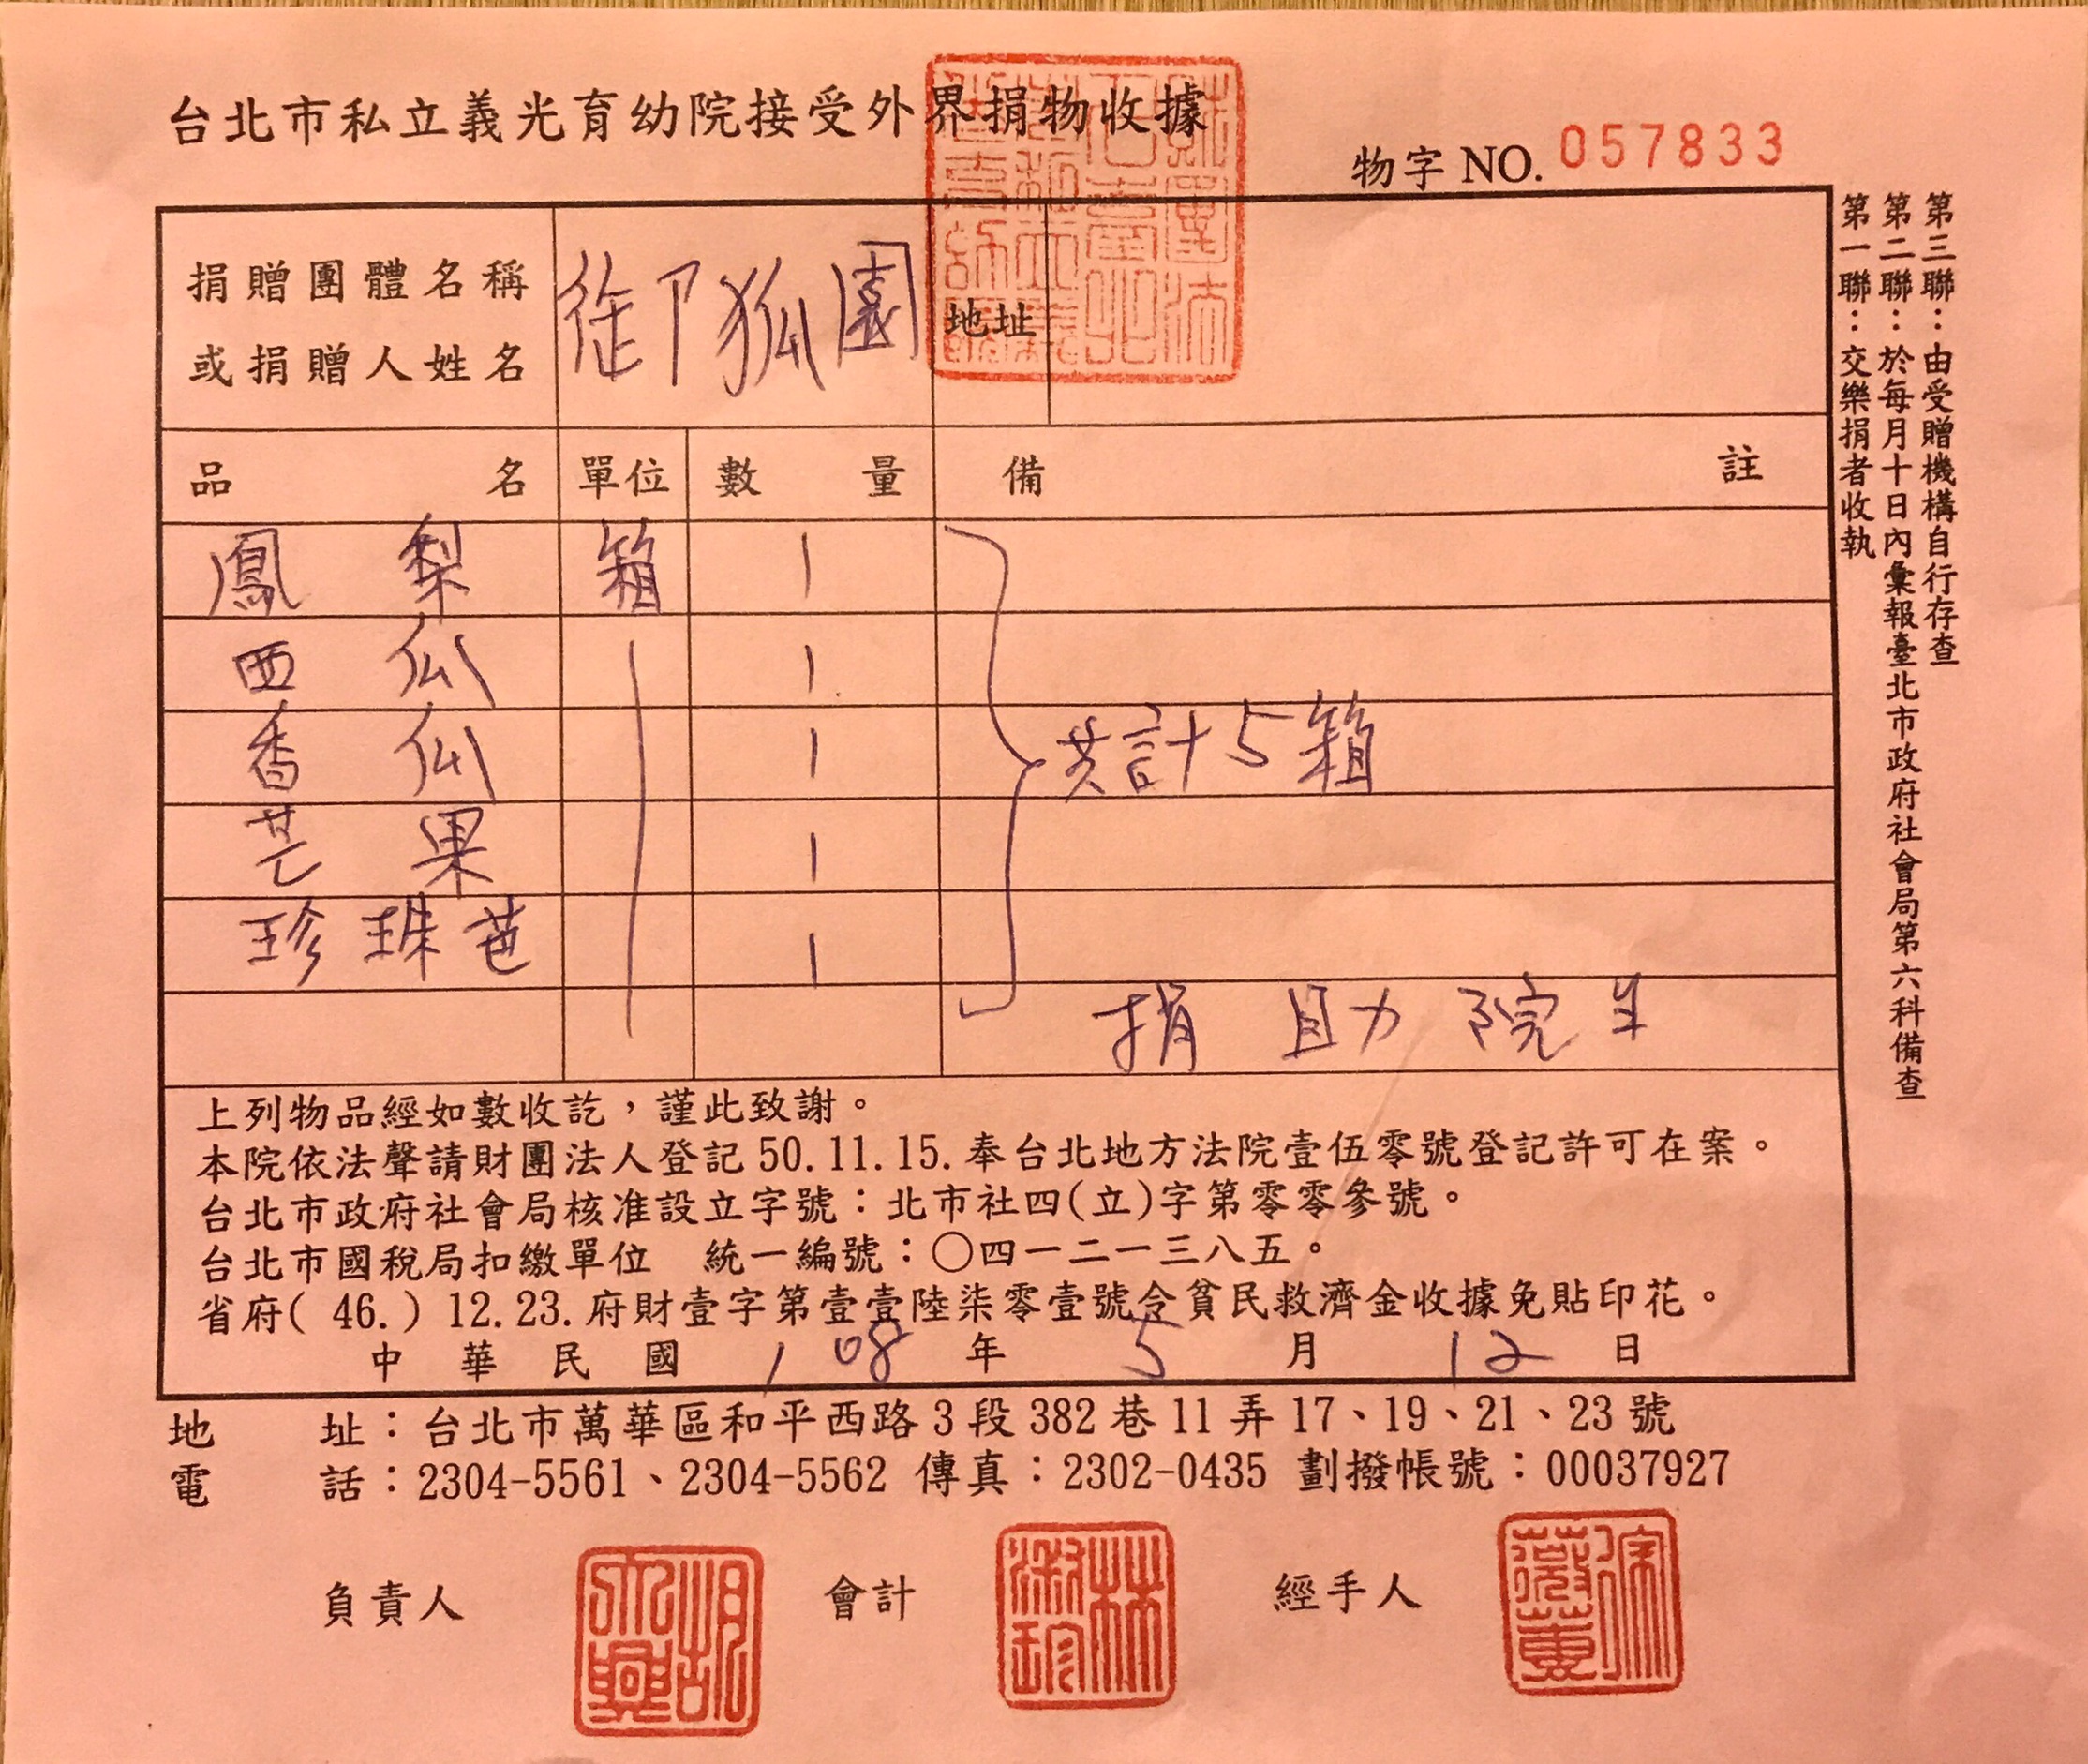 台北市私立義光育幼院接受外界捐物收據
物字 NO. 057833
捐贈團體名稱
或捐贈人姓名
御狐園
地址
品名 單位 數量 備註
鳳梨 箱 1
西瓜 1
香瓜 1
芒果 1
珍珠芭 1
共計5箱
捐助院生
上列物品經如數收訖，謹此致謝。
本院依法聲請財團法人登記50.11.15.奉台北地方法院壹伍零號登記許可在案。
台北市政府社會局核准設立字號：北市社四(立)字第零零參號。
台北市國稅局扣繳單位 統一編號：〇四一二一三八五。
省府( 46.) 12.23.府財壹字第壹壹陸柒零壹號令貧民救濟金收據免貼印花。
中華民國 108 年 5 月 12 日
地址：台北市萬華區和平西路3段382巷11弄17、19、21、23號
電話：2304-5561、2304-5562 傳真：2302-0435 劃撥帳號：00037927
負責人 會計 經手人
第三聯：由受贈機構自行存查
第二聯：於每月十日內彙報臺北市政府社會局第六科備查
第一聯：交樂捐者收執